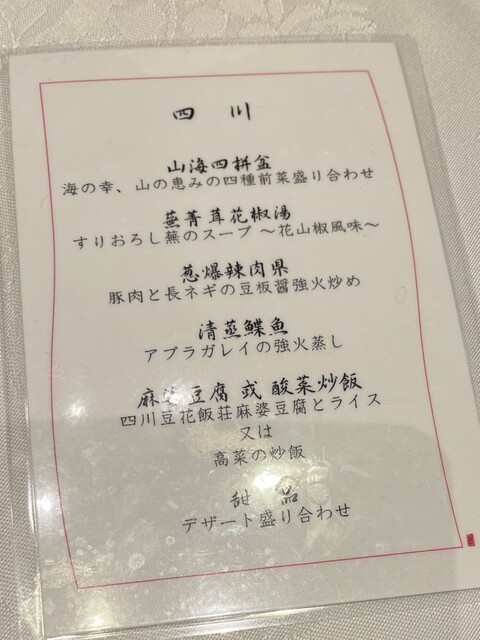 四川
山海四拼盆
海の幸、山の恵みの四種前菜盛り合わせ
蕪菁茸花椒湯
すりおろし蕪のスープ ～花山椒風味～
葱爆辣肉県
豚肉と長ネギの豆板醤強火炒め
清蒸鰈魚
アブラガレイの強火蒸し
麻婆豆腐 或 酸菜炒飯
四川豆花飯荘麻婆豆腐とライス
又は
高菜の炒飯
甜品
デザート盛り合わせ